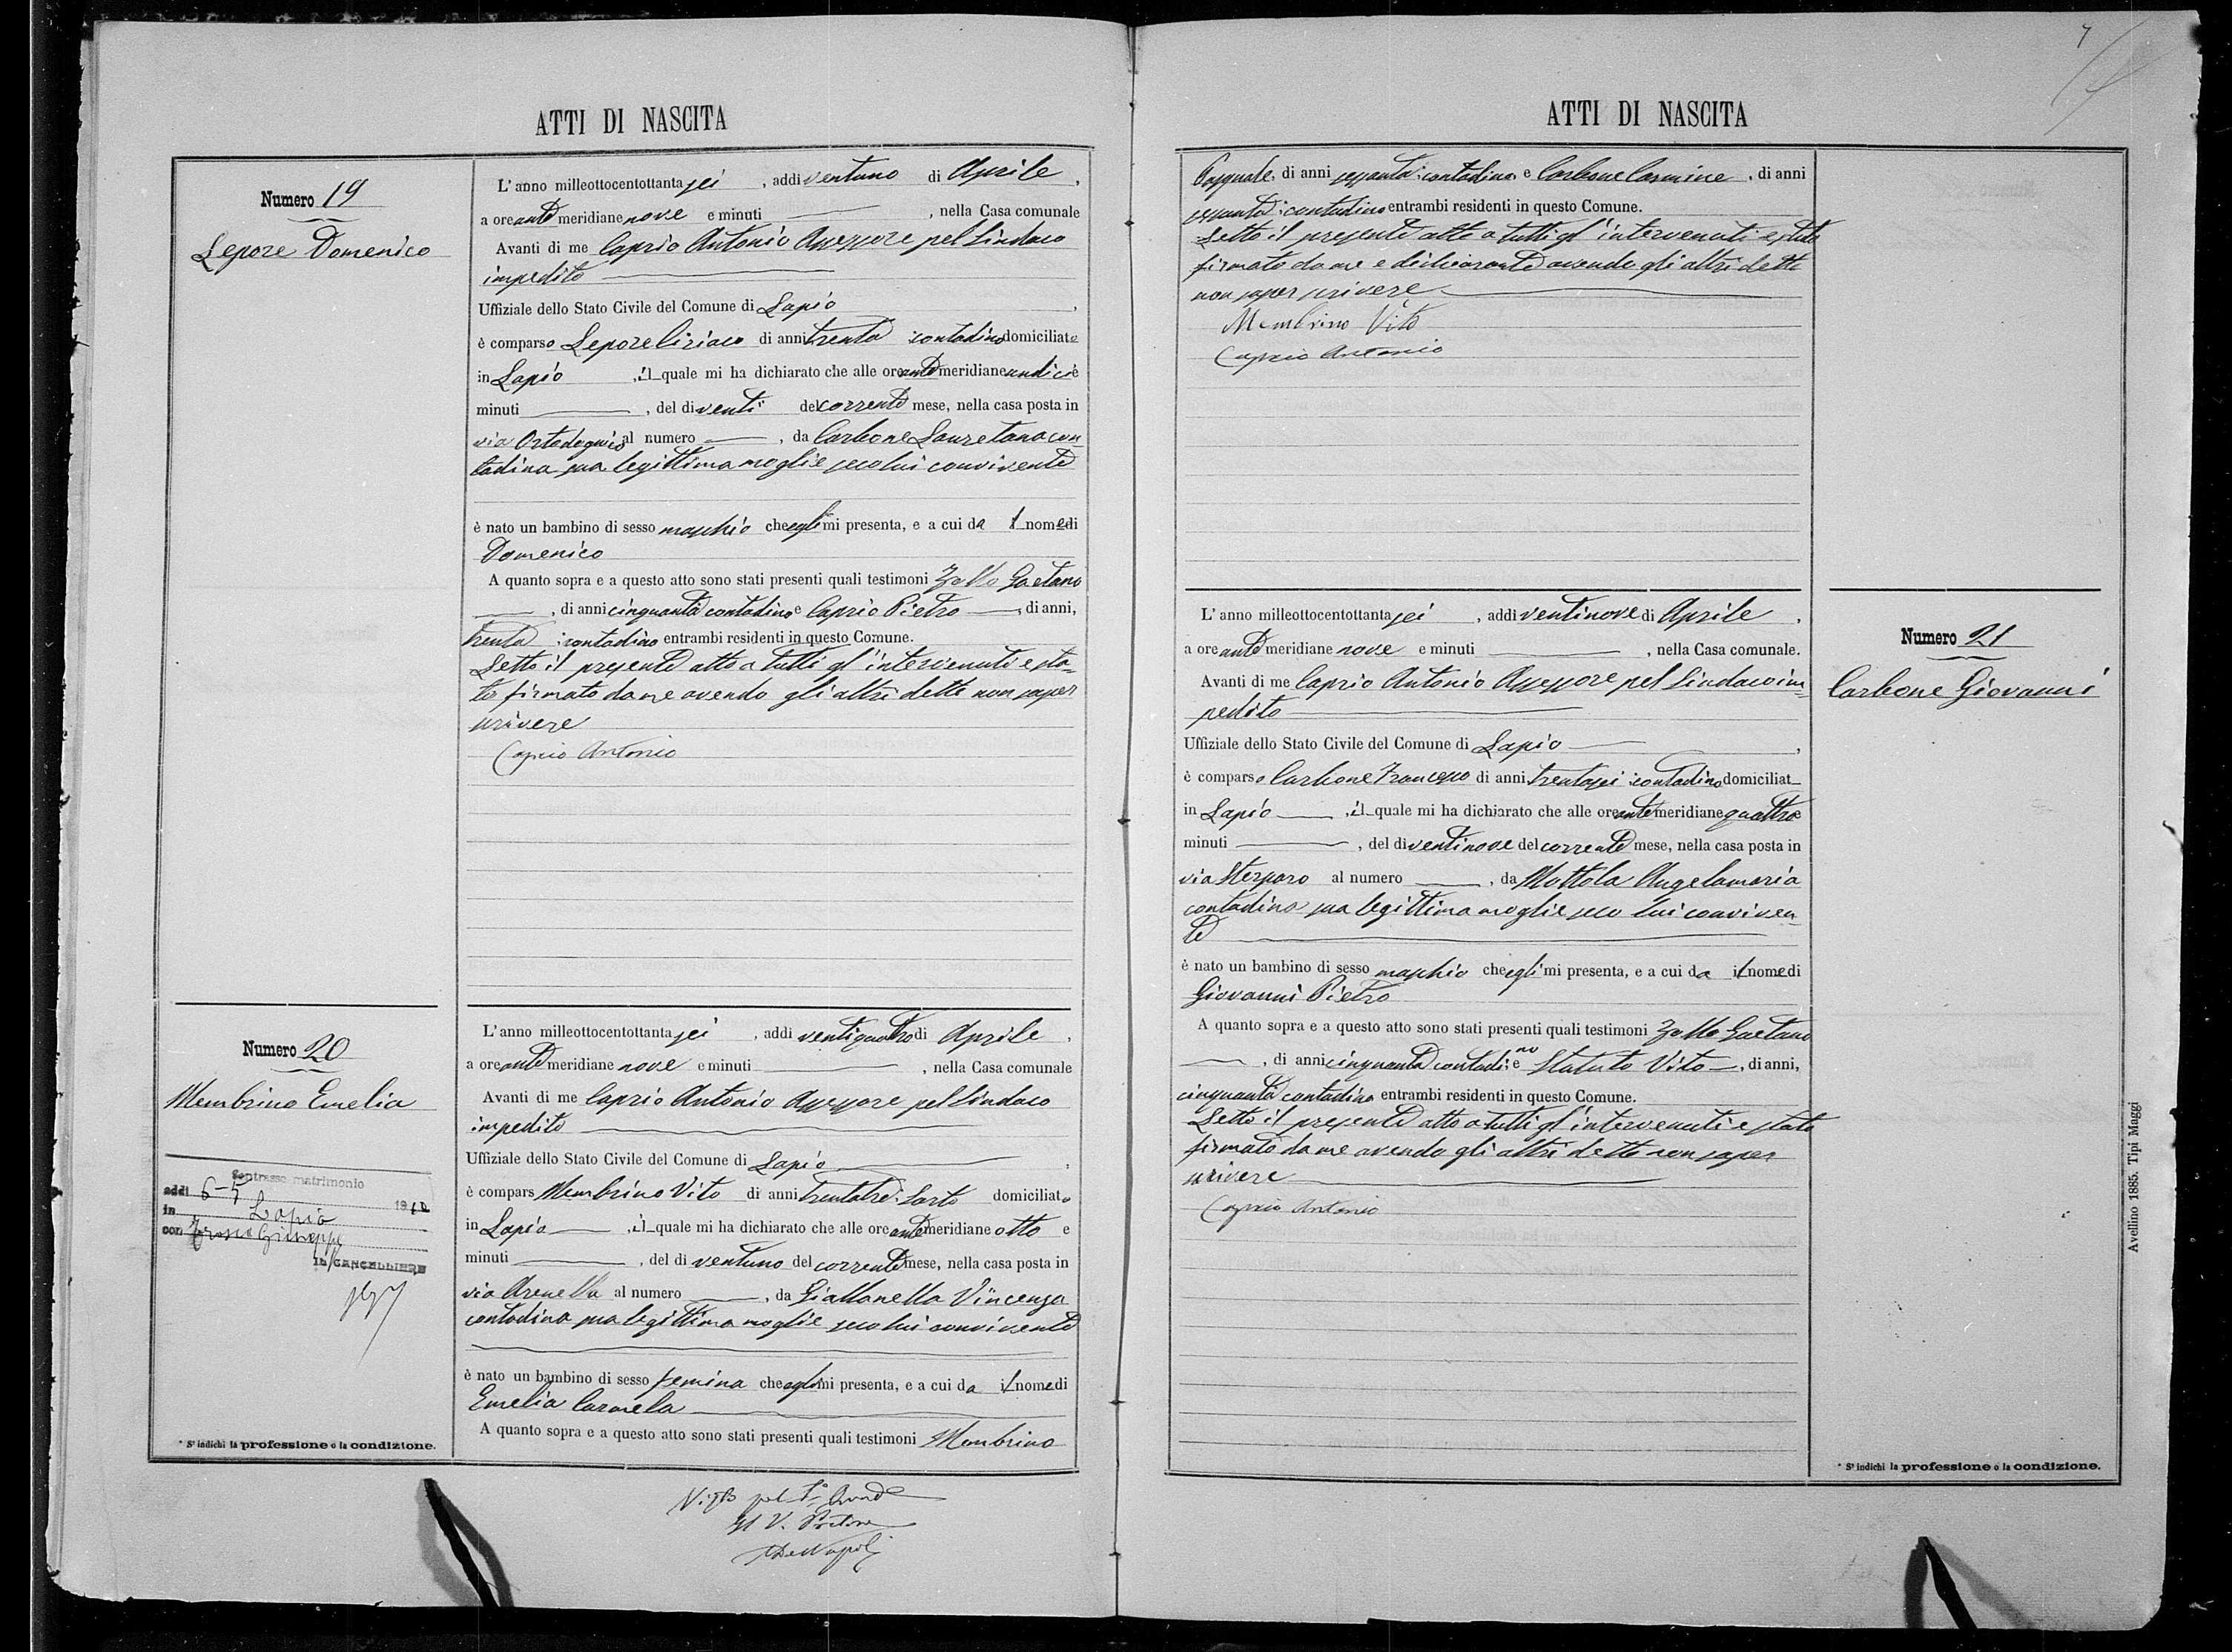 ATTI DI NASCITA
Numero 19
Lepore Domenico
L'anno milleottocentottantasei, addi ventuno di Aprile,
a ore ante meridiane nove e minuti, nella Casa comunale
Avanti di me Caprio Antonio Assessore pel Sindaco
impedito
Uffiziale dello Stato Civile del Comune di Lapio,
è comparso Lepore Ciriaco di anni trenta contadino domiciliato
in Lapio, il quale mi ha dichiarato che alle ore ante meridiane undici e
minuti, del di venti del corrente mese, nella casa posta in
via al numero, da Carbone Lauretana con-
tadina sua legittima moglie seco lui convivente
è nato un bambino di sesso maschio che egli mi presenta, e a cui da il nome di
Domenico
A quanto sopra e a questo atto sono stati presenti quali testimoni Zollo Gaetano
, di anni cinquanta contadino e Caprio Pietro, di anni,
trenta contadino entrambi residenti in questo Comune.
Letto il presente atto a tutti gl'intervenuti e sta-
to firmato da me avendo gli altri detto non saper
scrivere
Caprio Antonio
Numero 20
Membrino Emelia
Contrasse matrimonio
addi 6-5 19
in Lapio
con Giuseppe
IL CANCELLIERE
L'anno milleottocentottantasei, addi ventiquattro di Aprile,
a ore ante meridiane nove e minuti, nella Casa comunale
Avanti di me Caprio Antonio Assessore pel Sindaco
impedito
Uffiziale dello Stato Civile del Comune di Lapio,
è compars Membrino Vito di anni trentatre Sarto domiciliato
in Lapio, il quale mi ha dichiarato che alle ore ante meridiane otto e
minuti, del di ventuno del corrente mese, nella casa posta in
via Arenella al numero, da Giallanella Vincenza
contadina sua legittima moglie seco lui convivente
è nato un bambino di sesso femina che egli mi presenta, e a cui da il nome di
Emelia Carmela
A quanto sopra e a questo atto sono stati presenti quali testimoni Membrino
* Si indichi la professione o la condizione.
Il V. Pretore
De Napoli
7
ATTI DI NASCITA
Pasquale, di anni sessanta contadino e Carbone Carmine, di anni
sessanta contadino entrambi residenti in questo Comune.
Letto il presente atto a tutti gl'intervenuti e stato
firmato da me e dichiarante avendo gli altri detto
non saper scrivere
Membrino Vito
Caprio Antonio
L'anno milleottocentottantasei, addi ventinove di Aprile,
a ore ante meridiane nove e minuti, nella Casa comunale.
Avanti di me Caprio Antonio Assessore pel Sindaco im-
pedito
Uffiziale dello Stato Civile del Comune di Lapio,
è comparso Carbone Francesco di anni trentasei contadino domiciliat
in Lapio, il quale mi ha dichiarato che alle ore ante meridiane quattro e
minuti, del di ventinove del corrente mese, nella casa posta in
via Sterparo al numero, da Mottola Angelamaria
contadina sua legittima moglie seco lui conviven-
te
è nato un bambino di sesso maschio che egli mi presenta, e a cui da il nome di
Giovanni Pietro
A quanto sopra e a questo atto sono stati presenti quali testimoni Zollo Gaetano
, di anni cinquanta contadino e Statuto Vito, di anni,
cinquanta contadino entrambi residenti in questo Comune.
Letto il presente atto a tutti gl'intervenuti e stato
firmato da me avendo gli altri detto non saper
scrivere
Caprio Antonio
Numero 21
Carbone Giovanni
* Si indichi la professione o la condizione.
Avellino 1885. Tipi Maggi